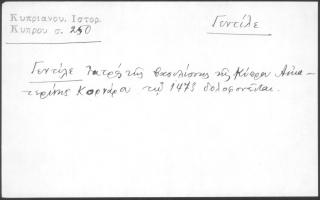 Κυπριανου. Ιστορ.
Κυπρου σ. 250
Γεντίλε
Γεντίλε ἰατρός τῆς βασιλίσσης τῆς Κύπρου Αἰκα-
τερίνης Κορνάρο τῷ 1473 δολοφονεῖται.